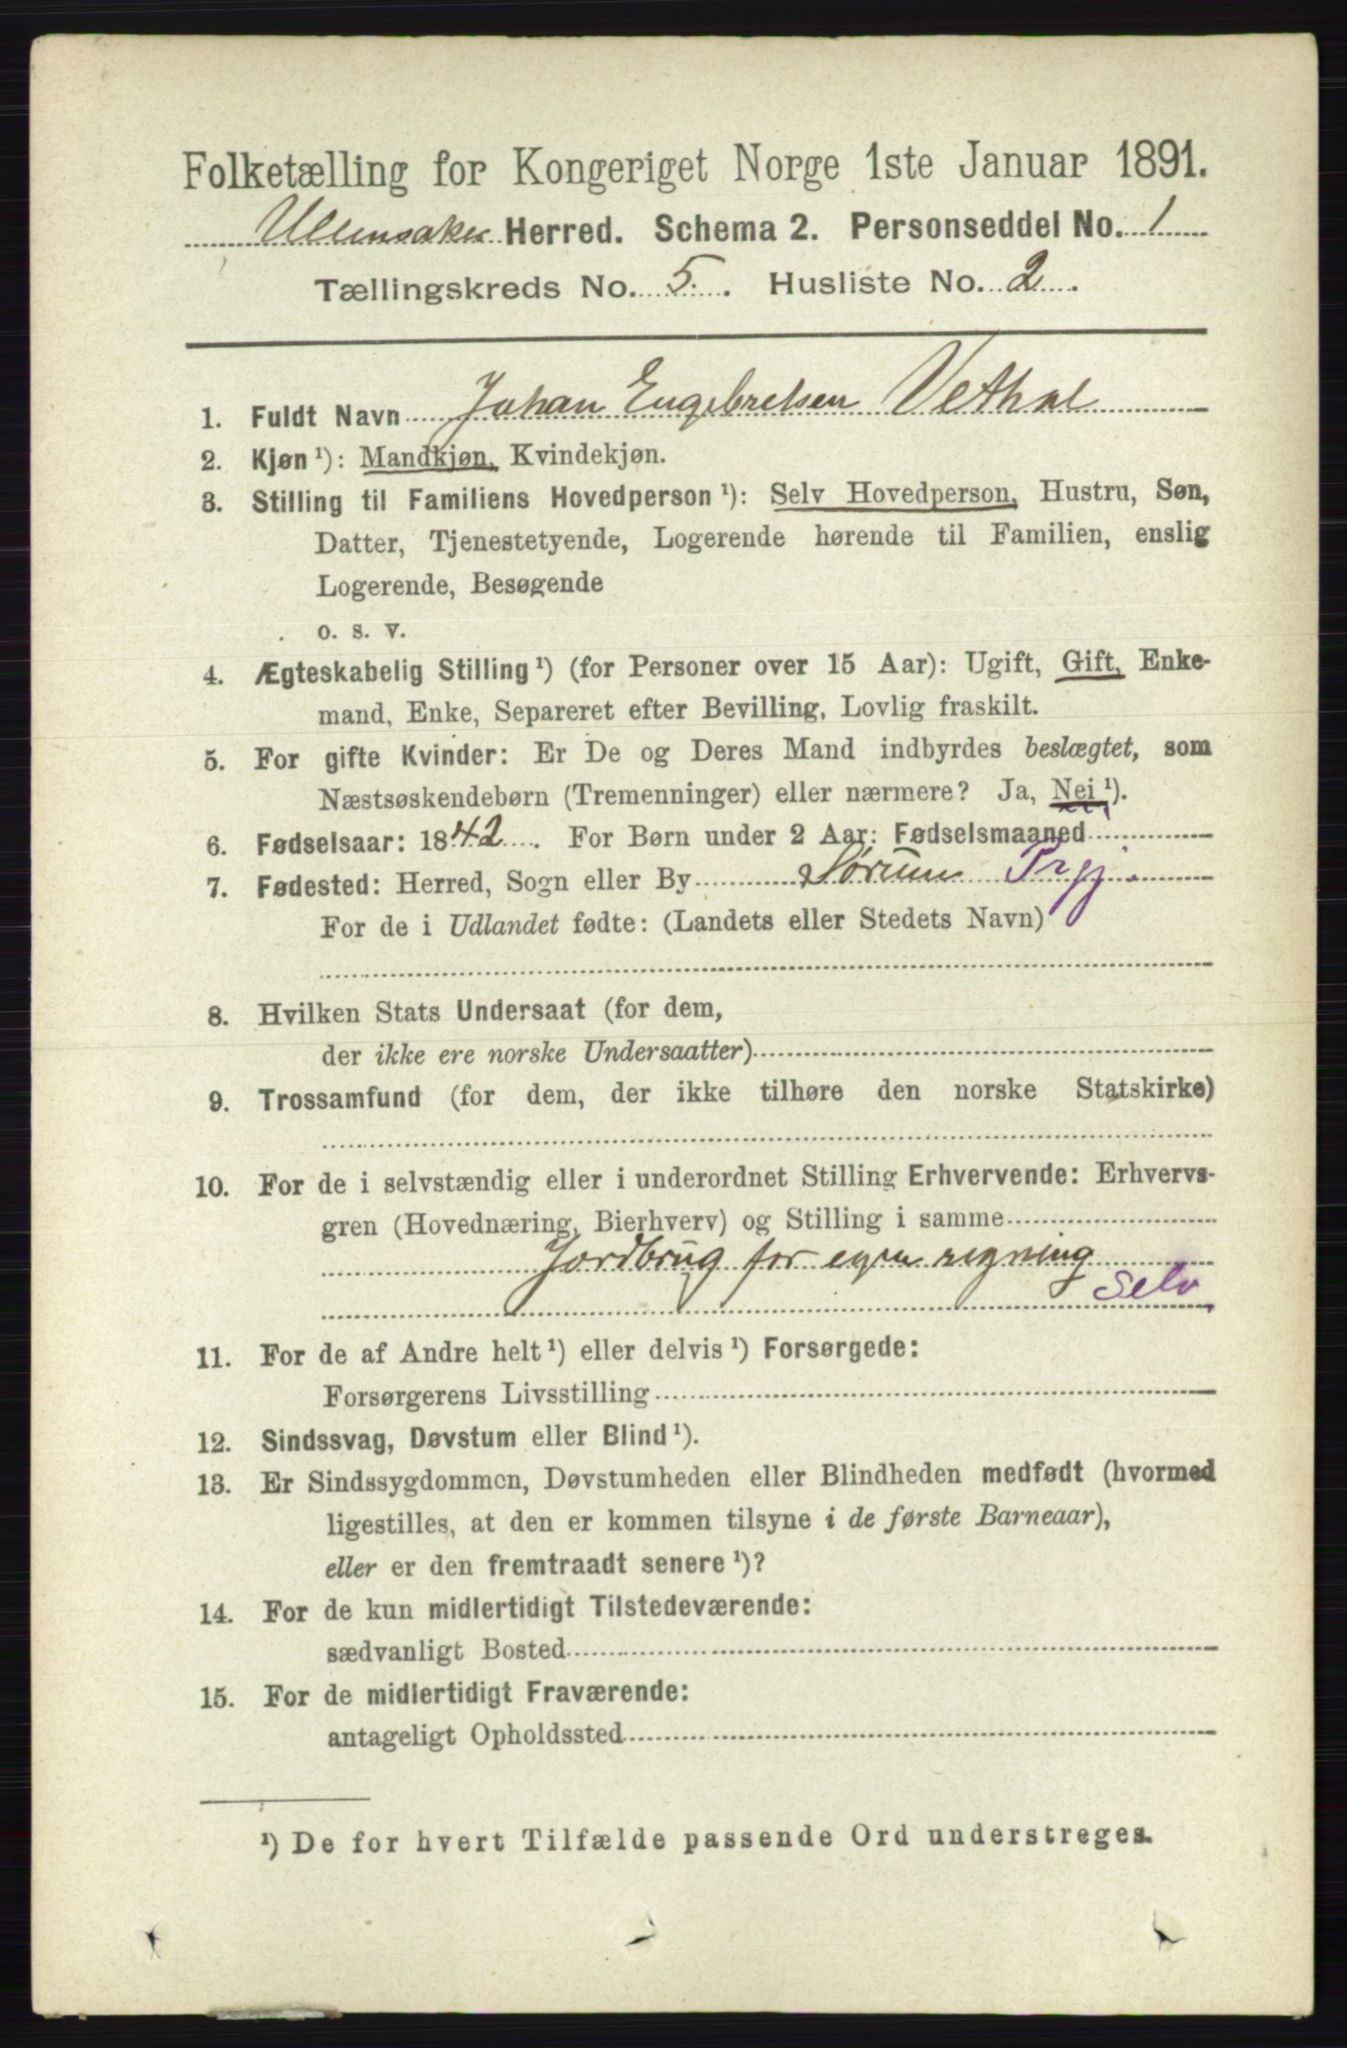 Folketælling for Kongeriget Norge 1ste Januar 1891.
Ullensaker Herred. Schema 2. Personseddel No. 1
Tællingskreds No. 5. Husliste No. 2.
1. Fuldt Navn Johan Engebretsen Vethal
2. Kjøn ¹): Mandkjøn, Kvindekjøn.
3. Stilling til Familiens Hovedperson ¹): Selv Hovedperson, Hustru, Søn,
Datter, Tjenestetyende, Logerende hørende til Familien, enslig
Logerende, Besøgende
o. s. v.
4. Ægteskabelig Stilling ¹) (for Personer over 15 Aar): Ugift, Gift, Enke-
mand, Enke, Separeret efter Bevilling, Lovlig fraskilt.
5. For gifte Kvinder: Er De og Deres Mand indbyrdes beslægtet, som
Næstsøskendebørn (Tremenninger) eller nærmere? Ja, Nei ¹).
6. Fødselsaar: 1842. For Børn under 2 Aar: Fødselsmaaned
7. Fødested: Herred, Sogn eller By Sørum Prgj.
For de i Udlandet fødte: (Landets eller Stedets Navn)
8. Hvilken Stats Undersaat (for dem,
der ikke ere norske Undersaatter)
9. Trossamfund (for dem, der ikke tilhøre den norske Statskirke)
10. For de i selvstændig eller i underordnet Stilling Erhvervende: Erhvervs-
gren (Hovednæring, Bierhverv) og Stilling i samme
Jordbrug for egen regning
Selv
11. For de af Andre helt ¹) eller delvis ¹) Forsørgede:
Forsørgerens Livsstilling
12. Sindssvag, Døvstum eller Blind ¹).
13. Er Sindssygdommen, Døvstumheden eller Blindheden medfødt (hvormed
ligestilles, at den er kommen tilsyne i de første Barneaar),
eller er den fremtraadt senere ¹)?
14. For de kun midlertidigt Tilstedeværende:
sædvanligt Bosted
15. For de midlertidigt Fraværende:
antageligt Opholdssted
¹) De for hvert Tilfælde passende Ord understreges.